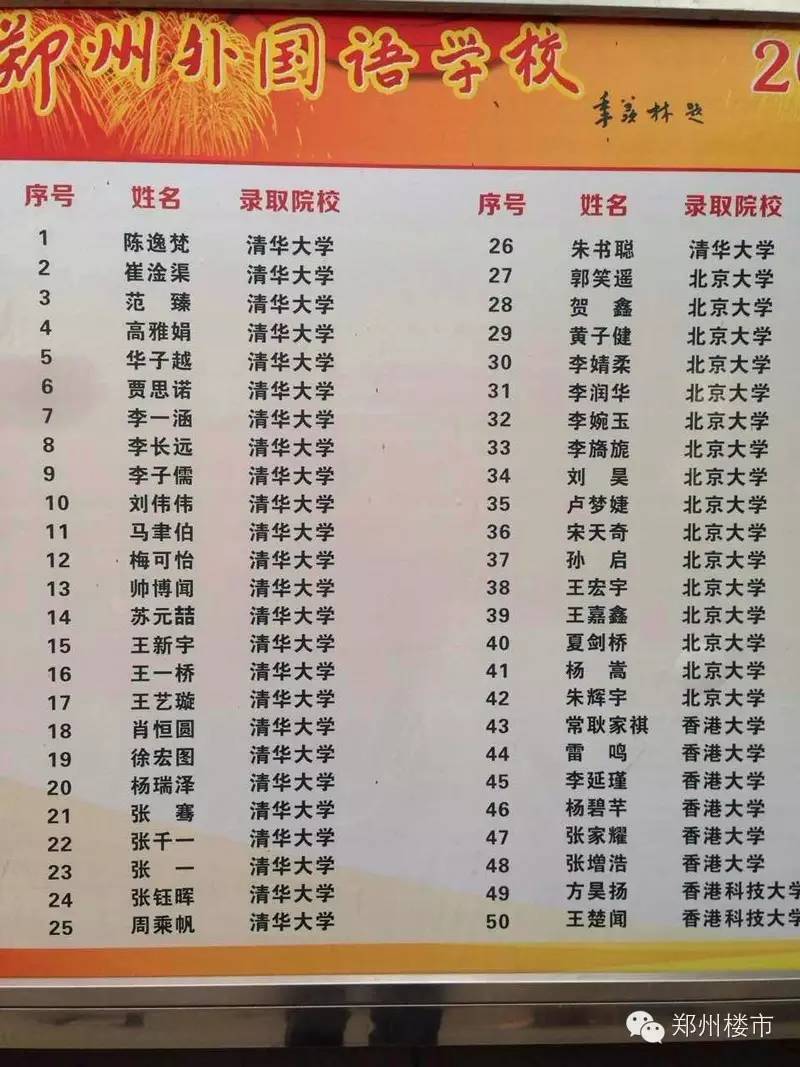 郑州外国语学校 20
季羡林题
序号 姓名 录取院校
1 陈逸梵 清华大学
2 崔淦渠 清华大学
3 范 臻 清华大学
4 高雅娟 清华大学
5 华子越 清华大学
6 贾思诺 清华大学
7 李一涵 清华大学
8 李长远 清华大学
9 李子儒 清华大学
10 刘伟伟 清华大学
11 马聿伯 清华大学
12 梅可怡 清华大学
13 帅博闻 清华大学
14 苏元喆 清华大学
15 王新宇 清华大学
16 王一桥 清华大学
17 王艺璇 清华大学
18 肖恒圆 清华大学
19 徐宏图 清华大学
20 杨瑞泽 清华大学
21 张 骞 清华大学
22 张千一 清华大学
23 张 一 清华大学
24 张钰晖 清华大学
25 周乘帆 清华大学
序号 姓名 录取院校
26 朱书聪 清华大学
27 郭笑遥 北京大学
28 贺 鑫 北京大学
29 黄子健 北京大学
30 李婧柔 北京大学
31 李润华 北京大学
32 李婉玉 北京大学
33 李旖旎 北京大学
34 刘 昊 北京大学
35 卢梦婕 北京大学
36 宋天奇 北京大学
37 孙 启 北京大学
38 王宏宇 北京大学
39 王嘉鑫 北京大学
40 夏剑桥 北京大学
41 杨 嵩 北京大学
42 朱辉宇 北京大学
43 常耿家祺 香港大学
44 雷 鸣 香港大学
45 李延瑾 香港大学
46 杨碧芊 香港大学
47 张家耀 香港大学
48 张增浩 香港大学
49 方昊扬 香港科技大学
50 王楚闻 香港科技大学
郑州楼市